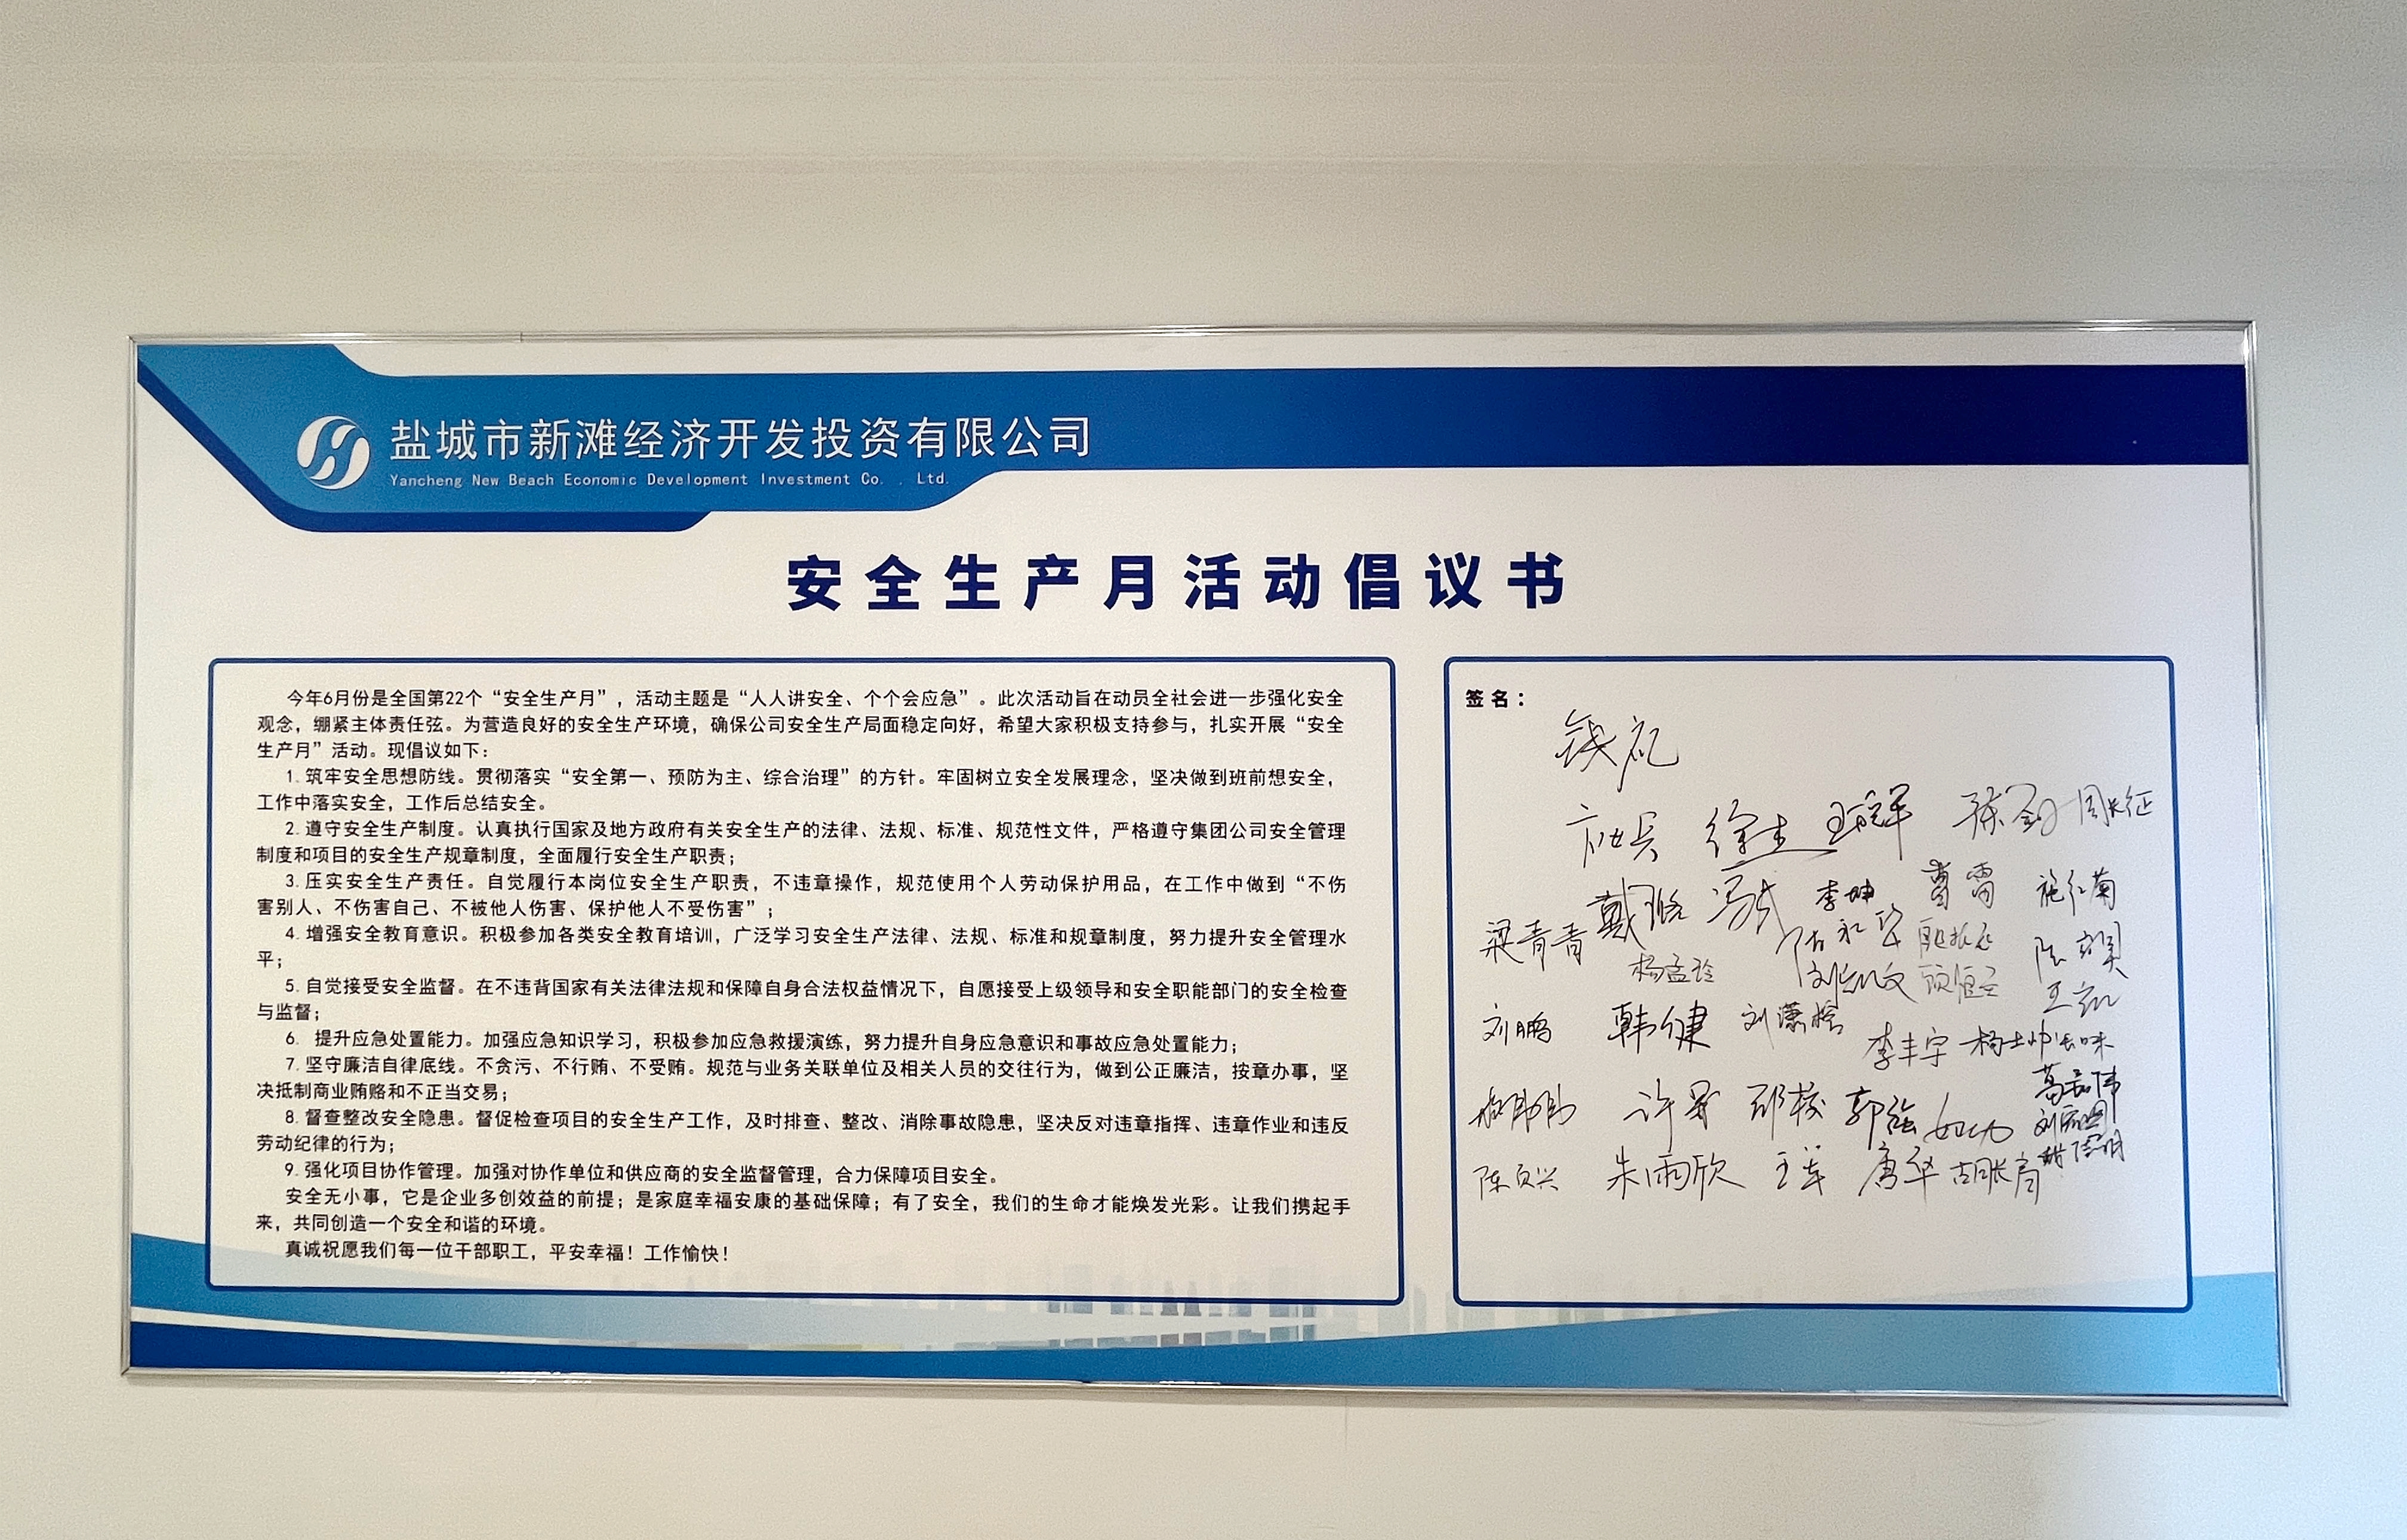 盐城市新滩经济开发投资有限公司
Yancheng New Beach Economic Development Investment Co. , Ltd.
安全生产月活动倡议书
今年6月份是全国第22个“安全生产月”，活动主题是“人人讲安全、个个会应急”。此次活动旨在动员全社会进一步强化安全
观念，绷紧主体责任弦。为营造良好的安全生产环境，确保公司安全生产局面稳定向好，希望大家积极支持参与，扎实开展“安全
生产月”活动。现倡议如下：
1.筑牢安全思想防线。贯彻落实“安全第一、预防为主、综合治理”的方针。牢固树立安全发展理念，坚决做到班前想安全，
工作中落实安全，工作后总结安全。
2.遵守安全生产制度。认真执行国家及地方政府有关安全生产的法律、法规、标准、规范性文件，严格遵守集团公司安全管理
制度和项目的安全生产规章制度，全面履行安全生产职责；
3.压实安全生产责任。自觉履行本岗位安全生产职责，不违章操作，规范使用个人劳动保护用品，在工作中做到“不伤
害别人、不伤害自己、不被他人伤害、保护他人不受伤害”；
4.增强安全教育意识。积极参加各类安全教育培训，广泛学习安全生产法律、法规、标准和规章制度，努力提升安全管理水
平；
5.自觉接受安全监督。在不违背国家有关法律法规和保障自身合法权益情况下，自愿接受上级领导和安全职能部门的安全检查
与监督；
6. 提升应急处置能力。加强应急知识学习，积极参加应急救援演练，努力提升自身应急意识和事故应急处置能力；
7.坚守廉洁自律底线。不贪污、不行贿、不受贿。规范与业务关联单位及相关人员的交往行为，做到公正廉洁，按章办事，坚
决抵制商业贿赂和不正当交易；
8.督查整改安全隐患。督促检查项目的安全生产工作，及时排查、整改、消除事故隐患，坚决反对违章指挥、违章作业和违反
劳动纪律的行为；
9.强化项目协作管理。加强对协作单位和供应商的安全监督管理，合力保障项目安全。
安全无小事，它是企业多创效益的前提；是家庭幸福安康的基础保障；有了安全，我们的生命才能焕发光彩。让我们携起手
来，共同创造一个安全和谐的环境。
真诚祝愿我们每一位干部职工，平安幸福！工作愉快！
签名：
周长征
李坤 曹雷 施红菊
梁青青
杨孟玲
刘鹏 韩健
李丰宇
郭强
朱雨欣 王军 唐华